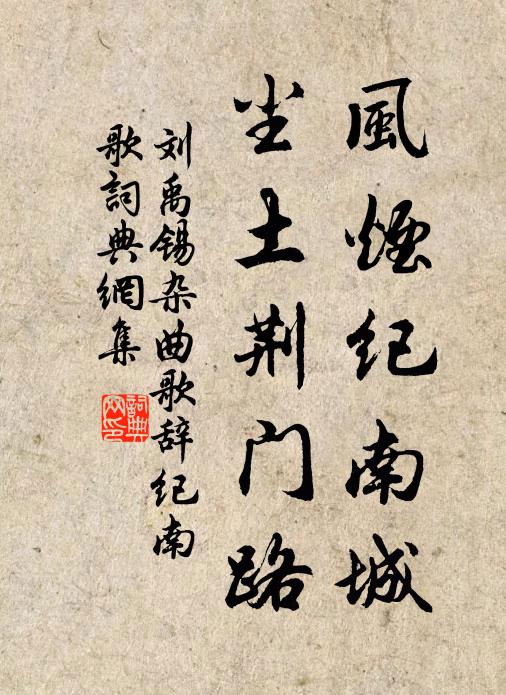 風煙紀南城
尘土荆门路
刘禹锡杂曲歌辞纪南
歌詞典網集
詞典網印